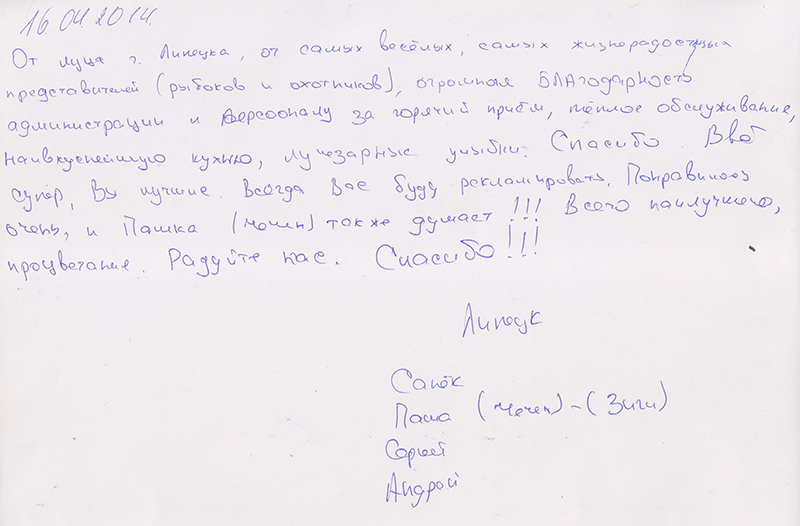 16.04.2014.
От луца г. Липецка, от самых весёлых, самых жизнерадостных
представителей (рыбоков и охотников), огромная БЛАгодарность
администрации и персооналу за горячий приём, тёплое обслуживание,
наивкуснейшую кухню, лучезарные улыбки. Спасибо. Всё
супер, Вы лучшие. Всегда Вас буду рекламировать. Понравилось
очень, и Пашка (мочен) также думает!!! Всего наилучшего,
процветание. Радуйте нас. Спасибо!!!
Липецк
Санёк
Паша (мочен) - (Зиги)
Сергей
Андрей